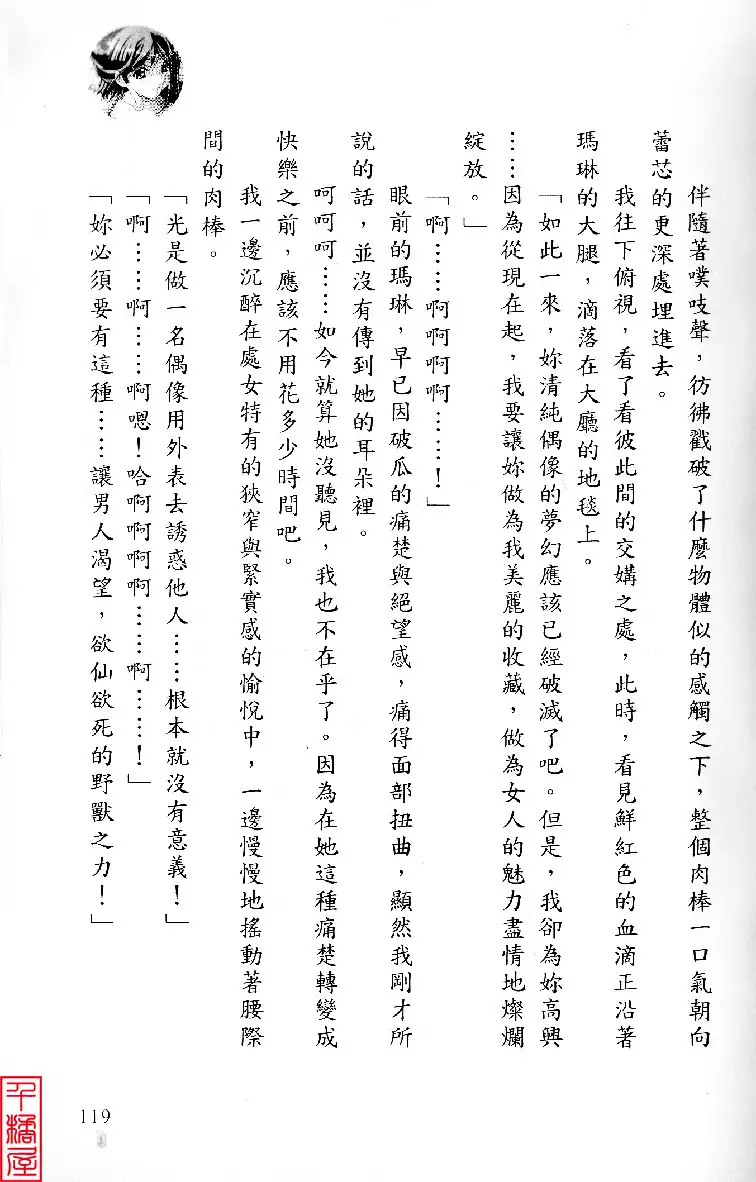 伴隨著噗吱聲，彷彿戳破了什麼物體似的感觸之下，整個肉棒一口氣朝向
蕾芯的更深處埋進去。
我往下俯視，看了看彼此間的交媾之處，此時，看見鮮紅色的血滴正沿著
瑪琳的大腿，滴落在大廳的地毯上。
「如此一來，妳清純偶像的夢幻應該已經破滅了吧。但是，我卻為妳高興
……因為從現在起，我要讓妳做為我美麗的收藏，做為女人的魅力盡情地燦爛
綻放。」
「啊……啊啊啊啊……！」
眼前的瑪琳，早已因破瓜的痛楚與絕望感，痛得面部扭曲，顯然我剛才所
說的話，並沒有傳到她的耳朵裡。
呵呵呵……如今就算她沒聽見，我也不在乎了。因為在她這種痛楚轉變成
快樂之前，應該不用花多少時間吧。
我一邊沉醉在處女特有的狹窄與緊實感的愉悅中，一邊慢慢地搖動著腰際
間的肉棒。
「光是做一名偶像用外表去誘惑他人……根本就沒有意義！」
「啊……啊……啊嗯！哈啊啊啊……啊……！」
「妳必須要有這種……讓男人渴望，欲仙欲死的野獸之力！」
119
千橘屋